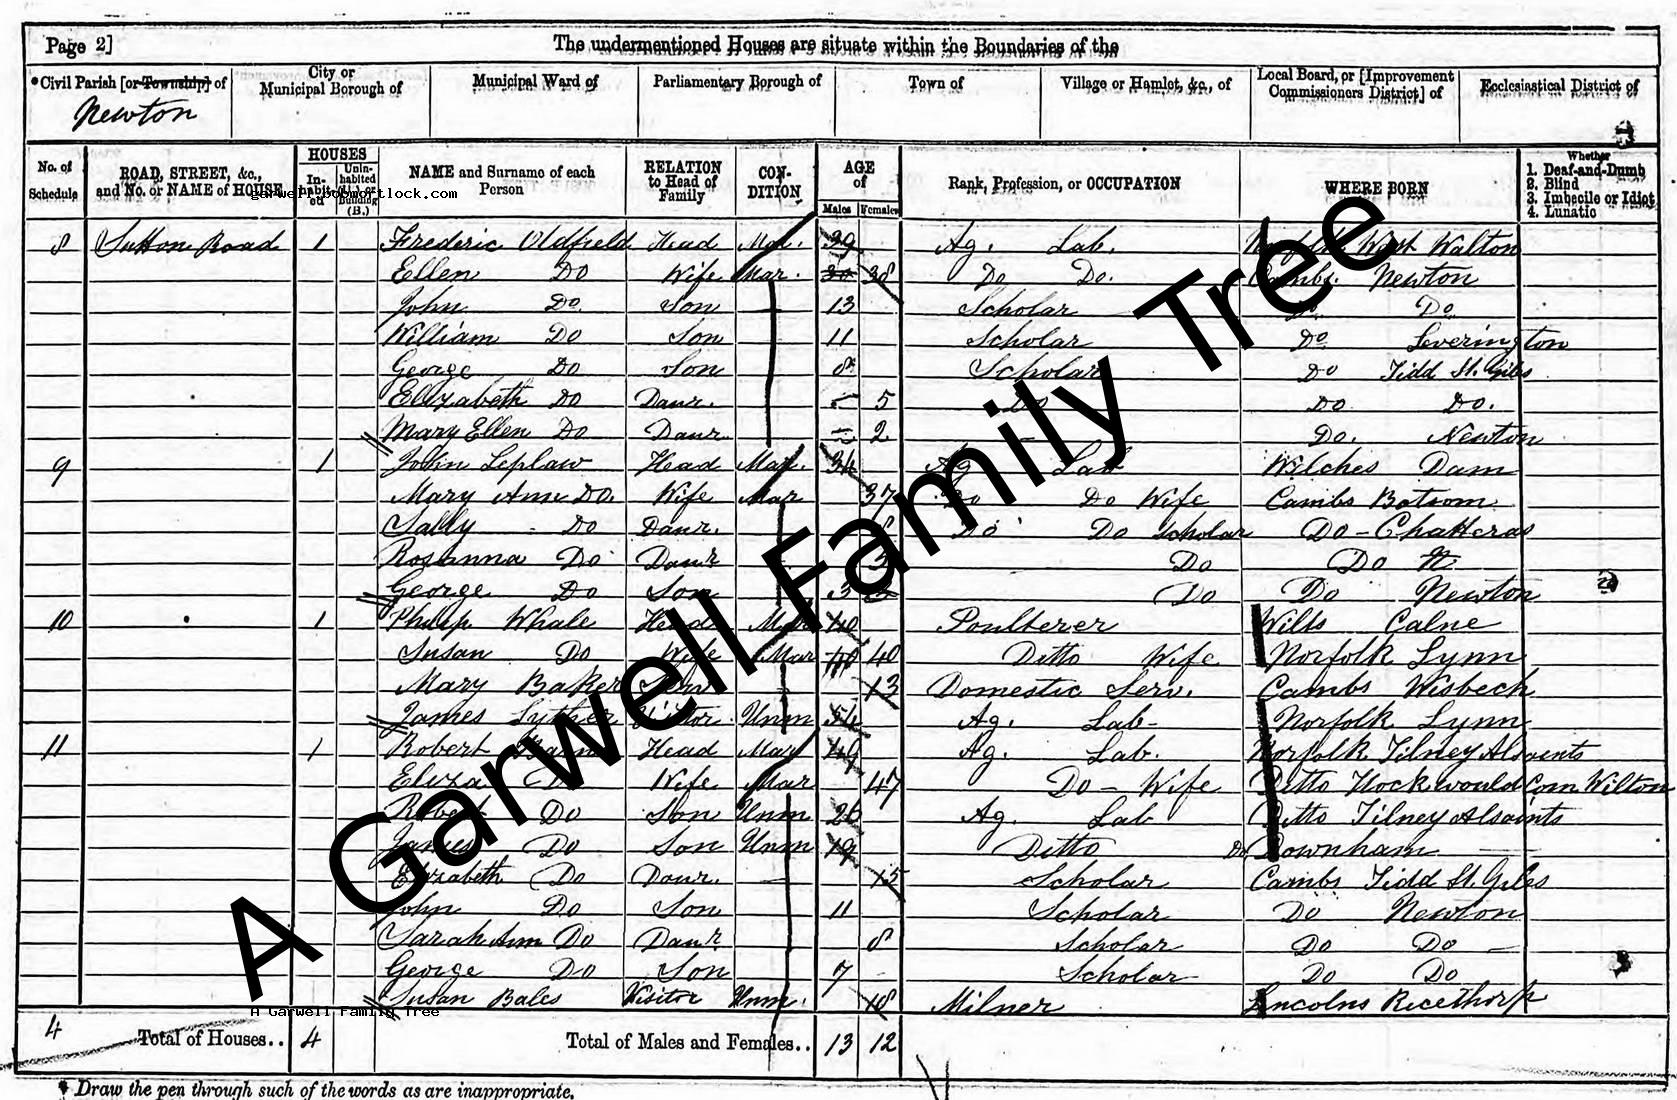 Page 2] The undermentioned Houses are situate within the Boundaries of the
*Civil Parish [or Township] of City or Municipal Borough of Municipal Ward of Parliamentary Borough of Town of Village or Hamlet, &c., of Local Board, or [Improvement Commissioners District] of Ecclesiastical District of
Newton
No. of Schedule ROAD, STREET, &c., and No. or NAME of HOUSE HOUSES In-habited Unin-habited (U.) or Building (B.) NAME and Surname of each Person RELATION to Head of Family CON-DITION AGE of Males Females Rank, Profession, or OCCUPATION WHERE BORN Whether 1. Deaf-and-Dumb 2. Blind 3. Imbecile or Idiot 4. Lunatic
8 Sutton Road 1 Frederic Oldfield Head Mar. 39 Ag. Lab. Norfolk West Walton
Ellen Do Wife Mar. 38 Do Do. Cambs. Newton
John Do. Son 13 Scholar Do Do
William Do Son 11 Scholar Do Leverington
George Do Son 8 Scholar Do Tidd St. Giles
Elizabeth Do Daur. 5 Do Do Do.
Mary Ellen Do Daur. 2 Do. Newton
9 1 John Leplaw Head Mar. 34 Ag Lab Welches Dam
Mary Ann Do. Wife Mar 37 Do Do Wife Cambs
Sally Do Daur. 8 Do Do Scholar Do - Chatteras
Rosanna Do Daur 5 Do Do
George Do Son 3 Do Do Newton
10 1 Philip Whale Head Mar 40 Poulterer Wilts Calne
Susan Do Wife Mar 40 Ditto Wife Norfolk Lynn
Mary Baker Serv 13 Domestic Serv. Cambs Wisbech
James Visitor Unm 54 Ag. Lab- Norfolk Lynn
11 1 Robert Head Mar 49 Ag. Lab. Norfolk Tilney Alsaints
Eliza Do Wife Mar 47 Do - Wife Ditto Hockwould Com Wilton
Robert Do Son Unm 26 Ag. Lab Ditto Tilney Alsaints
James Do Son Unm 19 Ditto Do Downham
Elizabeth Do Daur. 15 Scholar Cambs Tidd St. Giles
John Do Son 11 Scholar Do Newton
Sarah Ann Do Daur 8 Scholar Do Do
George Do Son 7 Scholar Do Do
Susan Bales Visitor Unm. 18 Milner Lincolns
4 Total of Houses.. 4 Total of Males and Females.. 13 12
* Draw the pen through such of the words as are inappropriate.
A Garwell Family Tree
A Garwell Family Tree